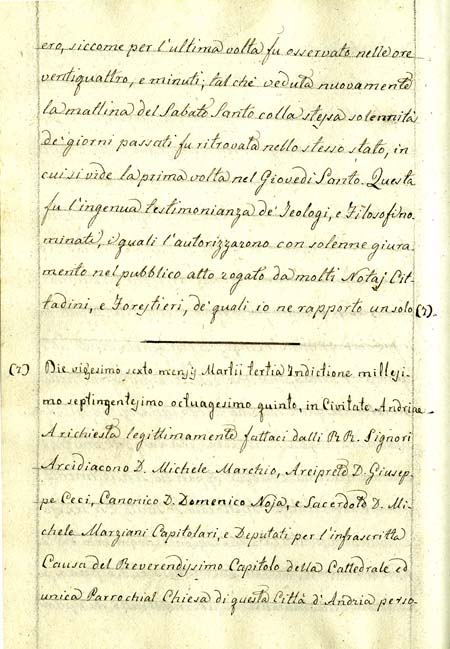 ero, siccome per l'ultima volta fu osservato nelle ore
ventiquattro, e minuti; tal che veduta nuovamente
la mattina del Sabato Santo colla stessa solennità
de' giorni passati fu ritrovata nello stesso stato, in
cui si vide la prima volta nel Giovedì Santo. Questa
fu l'ingenua testimonianza de' Teologi, e Filosofi no-
minati, i quali l'autorizzarono con solenne giura-
mento nel pubblico atto rogato da molti Notaj Cit-
tadini, e Forestieri, de' quali io ne rapporto un solo (7).
(7) Die vigesimo sexto mensij Martii tertia Indictione millesi-
mo septingentesimo octuagesimo quinto, in Civitate Andriae
A richiesta legittimamente fattaci dalli R R. Signori
Arcidiacono D. Michele Marchio, Arciprete D. Giusep-
pe Ceci, Canonico D. Domenico Noja, e Sacerdote D. Mi-
chele Marziani Capitolari, e Deputati per l'infrascritta
Causa del Reverendissimo Capitolo della Cattedrale ed
unica Parrochial Chiesa di questa Città d'Andria perso-